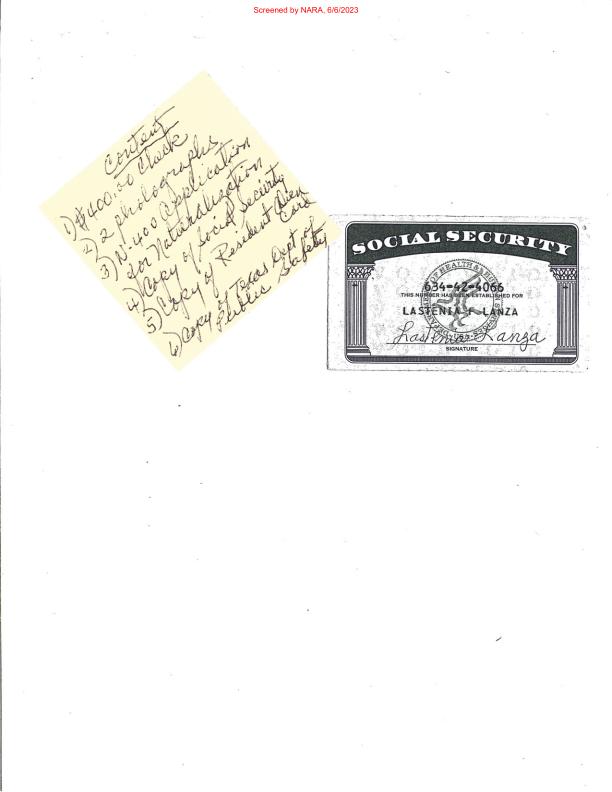 Screened by NARA, 6/6/2023
Content
1) $400.00 Check
2) 2 photographs
3) N-400 Application
for Naturalization
4) Copy of Social Security
5) Copy of Resident Alien
Card
6) Copy of Texas Dept of
Public Safety
SOCIAL SECURITY
634-42-4066
THIS NUMBER HAS BEEN ESTABLISHED FOR
LASTENIA F LANZA
Lastenia Lanza
SIGNATURE